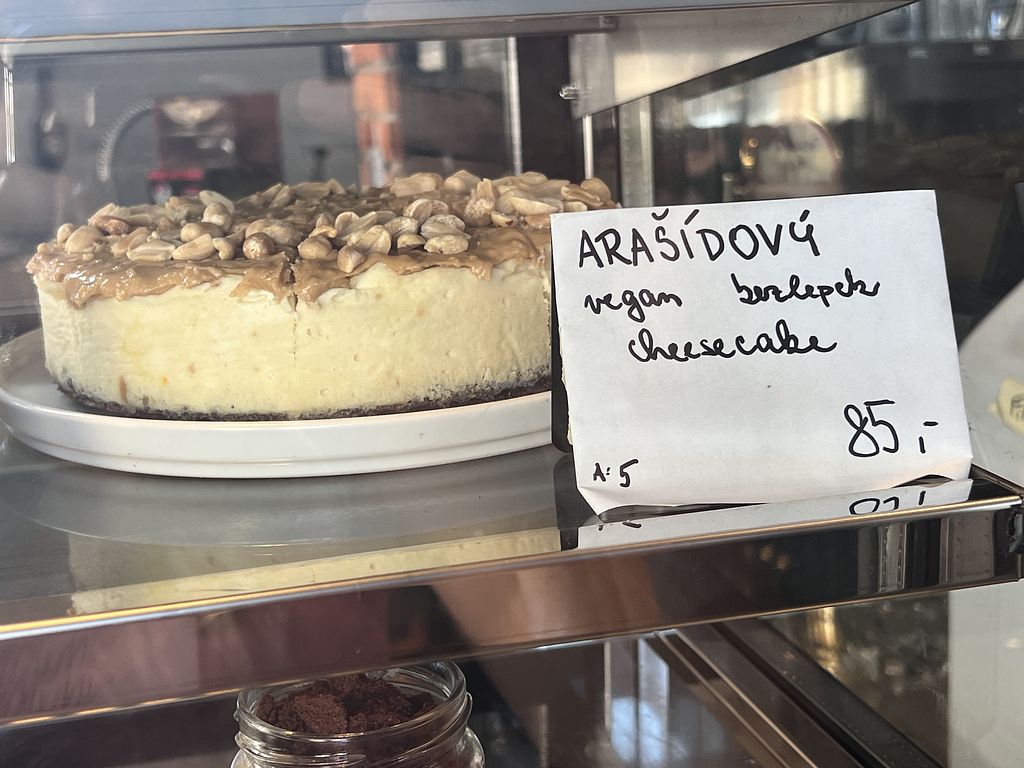 ARAŠÍDOVÝ
vegan bezlepek
cheesecake
85,-
A: 5